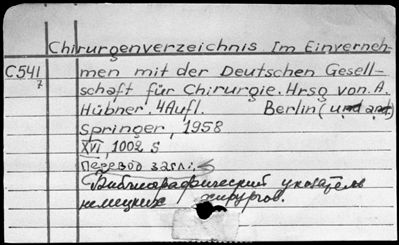 Chirurgenverzeichnis Im Einverneh-
C541 men mit der Deutschen Gesell-
7 schaft für Chirurgie. Hrsg von. A.
Hübner. 4Aufl. Berlin (und and)
Springer, 1958
XVI, 1002 S
Перевод загл.:
Библиографический указатель
немецких хирургов.